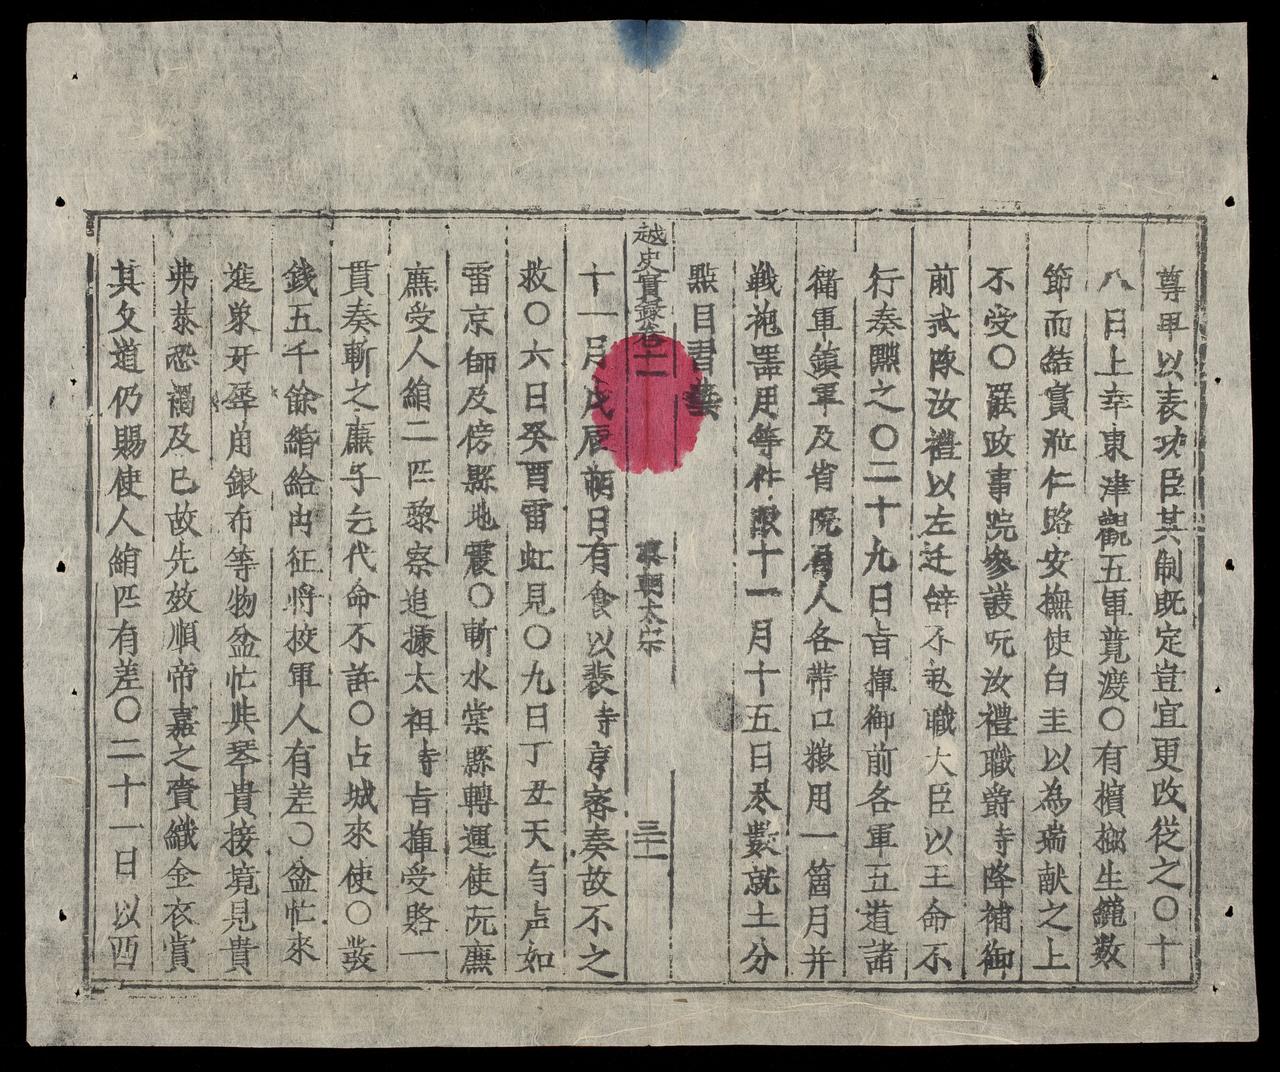 尊卑以表功臣其制既定豈宜更改從之〇十
八日上幸東津觀五軍竟渡〇有檳榔生纔数
節而結實涖仁路安撫使白圭以為瑞献之上
不受〇罷政事院參議阮汝禮職爵寺降補御
前武隊汝禮以左迁辝不就職大臣以王命不
行奏黙之〇二十九日旨揮御前各軍五道諸
衛軍鎮軍及省院各人各帶口粮用一箇月并
戦袍器用等件限十一月十五日尽數就土分
點目習藝
越史實録卷十一
黎朝太宗
三十一
十一月戊辰朝日有食以裴寺亨密奏故不之
救〇六日癸酉雷虹見〇九日丁丑天有声如
雷京師及傍縣地震〇斬水棠縣轉運使阮廉
廉受人絹二匹黎察追據太祖寺旨揮受賂一
貫奏斬之廉子乞代命不許〇占城來使〇發
銭五千餘緡給内征将校軍人有差〇盆忙來
進象牙犀角鍬布等物盆忙與琴貴接境見貴
弗恭恐禍及已故先效順帝嘉之賚纖金衣賞
其父道仍賜使人絹匹有差〇二十一日以西